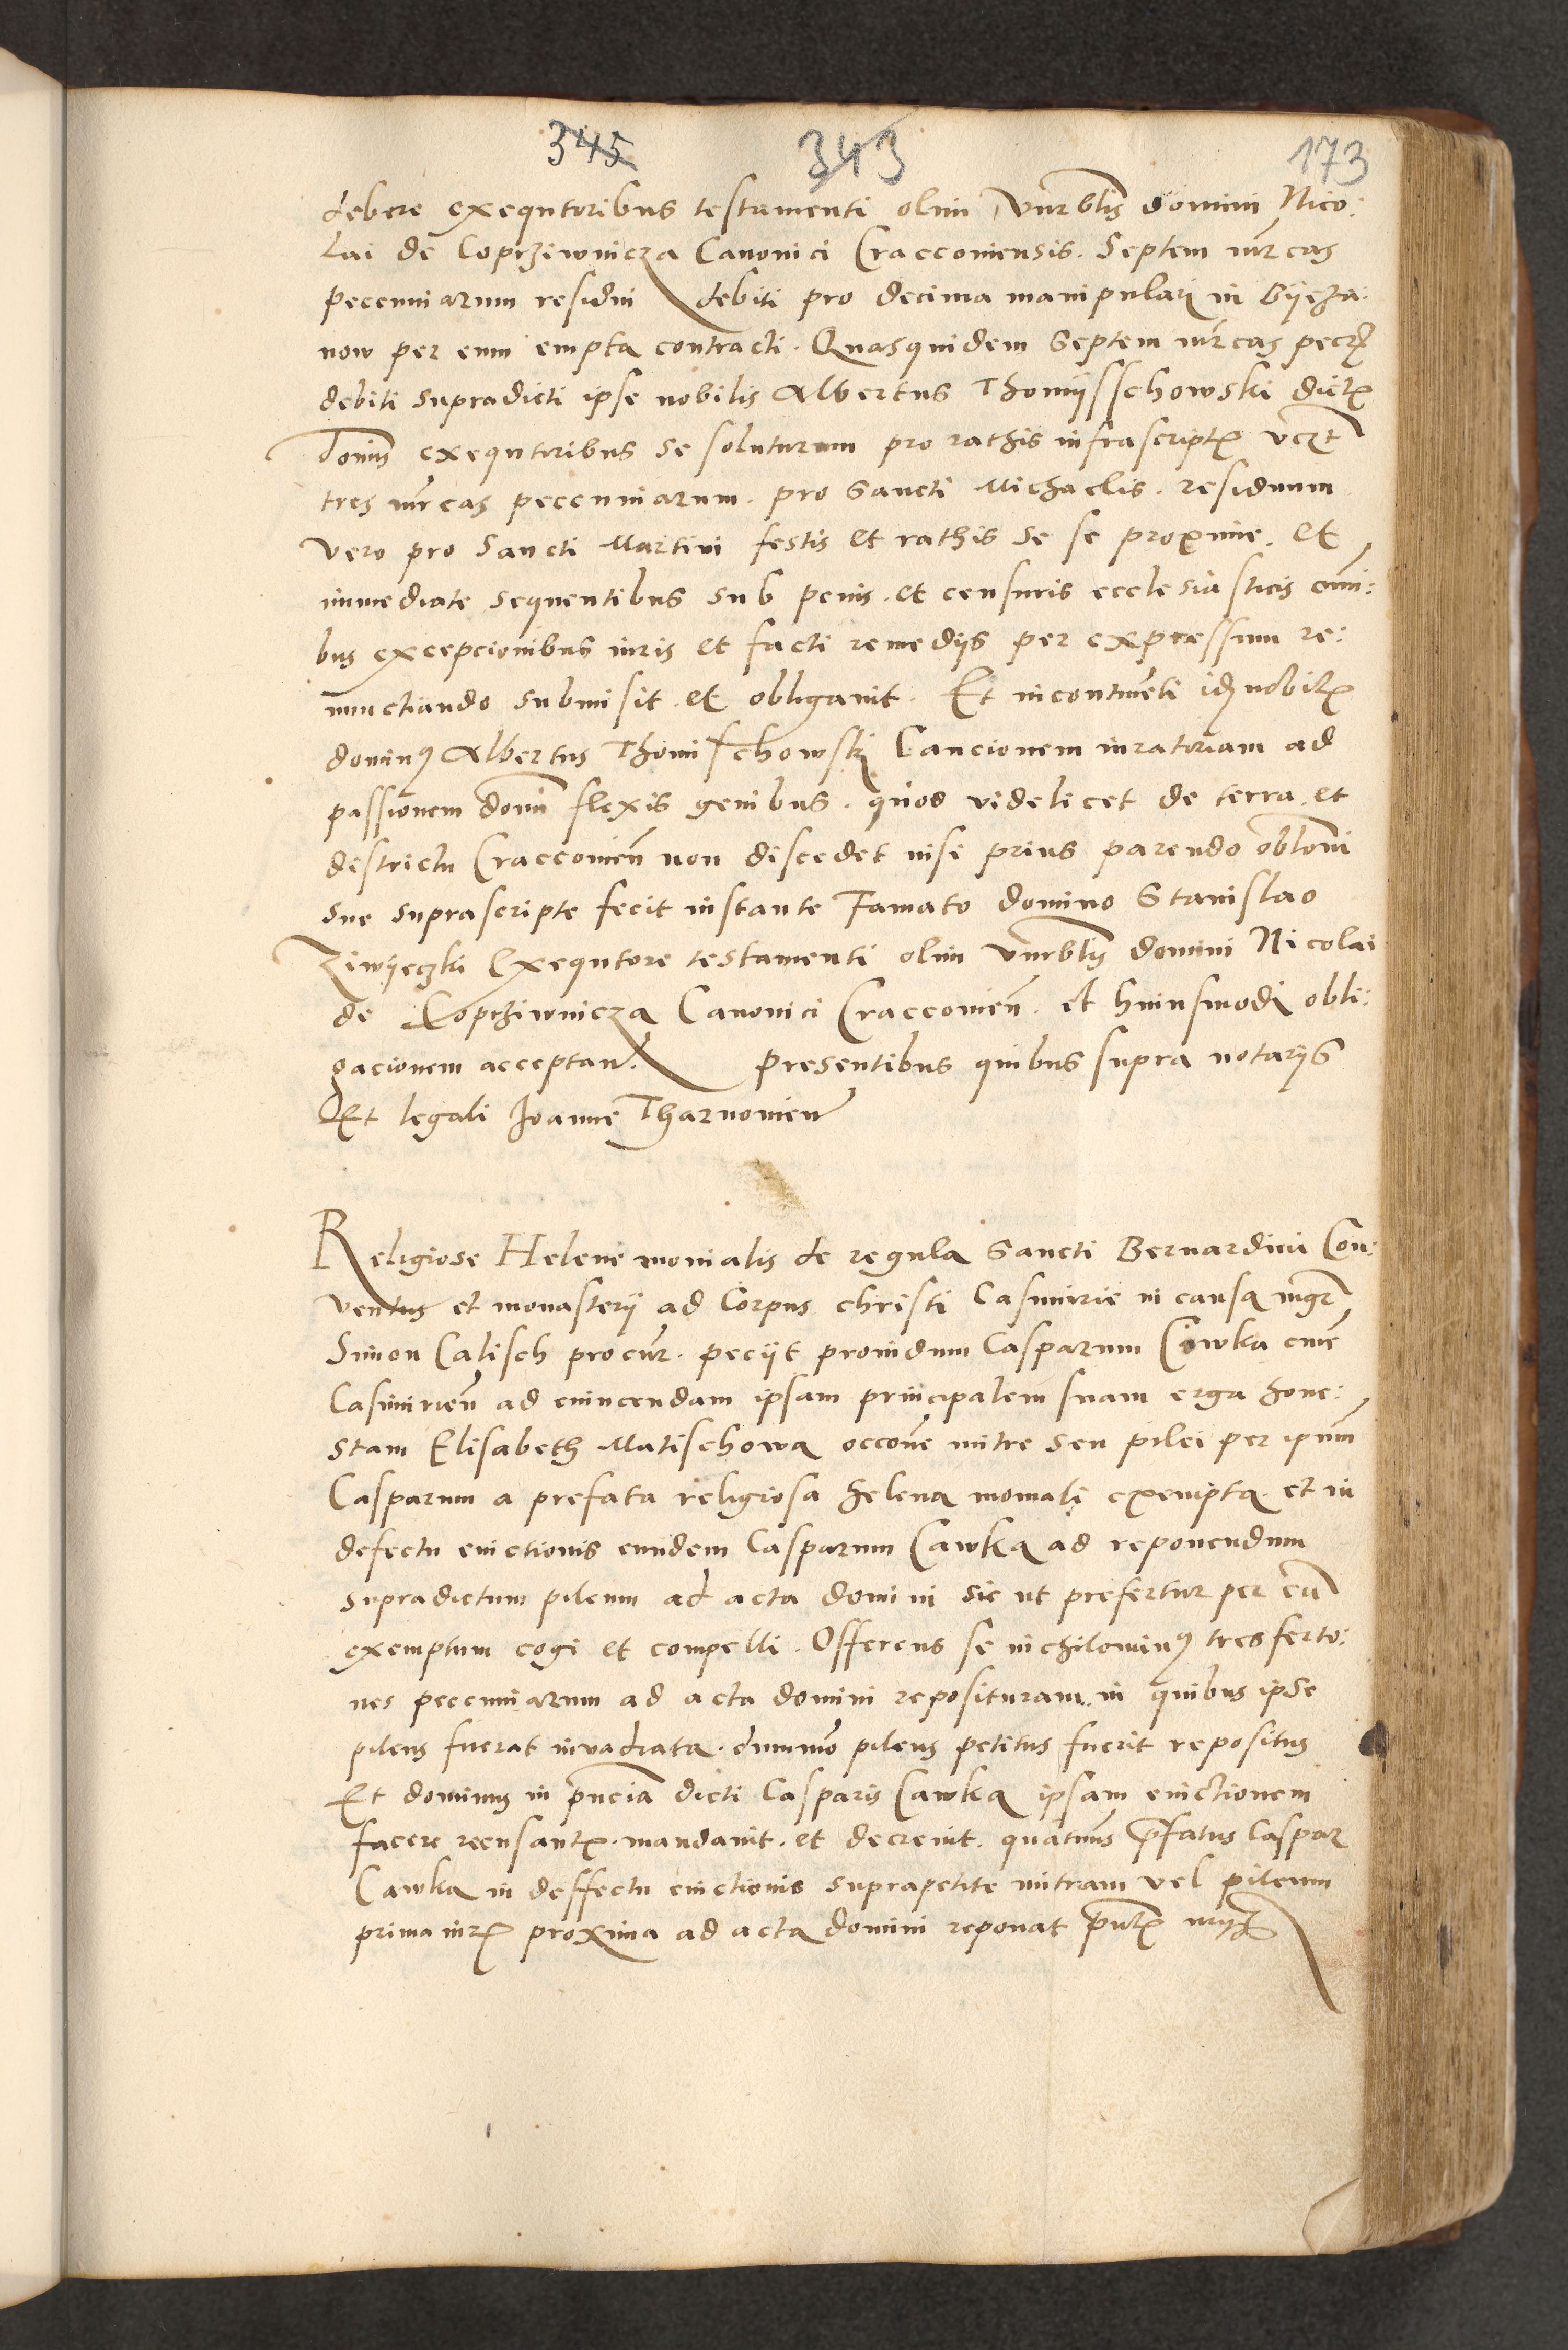 345 343 173
debere exequtoribus testamenti olim Vnrblis domini Nico:
lai de Coprziwnicza Canonici Craccoviensis. Septem mrcas
peccuniarum residui debiti pro decima manipulari in Biieza:
now per eum empta contracti. Quasquidem Septem mrcas pecr
debiti supradicti ipse nobilis Albertus Thomiisschowski dictis
dominis exequtoribus se soluturum pro rathis infrascriptis vczt
tres mrcas peccuniarum. pro Sancti Michaelis. residuum
vero pro Sancti Martini festis et rathis se se proxime. et
immediate sequentibus sub penis. et censuris ecclesiasticis omni:
bus excepcionibus iuris et facti remedys per expressum re:
nunctiando submisit. et obligauit. Et incontinenti idem nobilis
dominus Albertus Thomischowski Caucionem iuratoriam ad
passionem domini flexis genibus. quod videlicet de terra. et
destrictu Craccovien non discedet nisi prius parendo obloni
sue suprascripte fecit instante Famato domino Stanislao
Ziwyeczki Exequtore testamenti olim Vnrblis domini Nicolai
de Coprziwnicza Canonici Craccovien. et huiusmodi obli:
gacionem acceptan. presentibus quibus supra notarys
Et legali Joanne Tharnovien

Religiose Helene monialis de regula Sancti Bernardini Con:
ventus et monastery ad Corpus christi Casimirie in causa mgr
Simon Calisch procur. peciit prouidum Casparum Cawka ciue
Casimirien ad euincendam ipsam principalem suam erga hone:
stam Elisabeth Matischowa occone mitre seu pilei per ipsum
Casparum a prefata religiosa helena moniali exempta. et in
defectu euictionis eundem Casparum Cawka ad reponendum
supradictum pileum ad acta domini sic ut prefertur per eum
exemptum cogi et compelli. Offerens se nichilominus tres ferto:
nes peccuniarum ad acta domini reposituram. in quibus ipse
pileus fuerat invadiata. dummodo pileus petitus fuerit repositus
Et dominus in pncia dicti Casparis Cawka ipsam euictionem
facere recusantis. mandauit. et decreuit. quatenus prefatus Caspar
Cawka in deffectu euictionis suprapetite mitram vel pileum
prima iuris proxima ad acta domini reponat